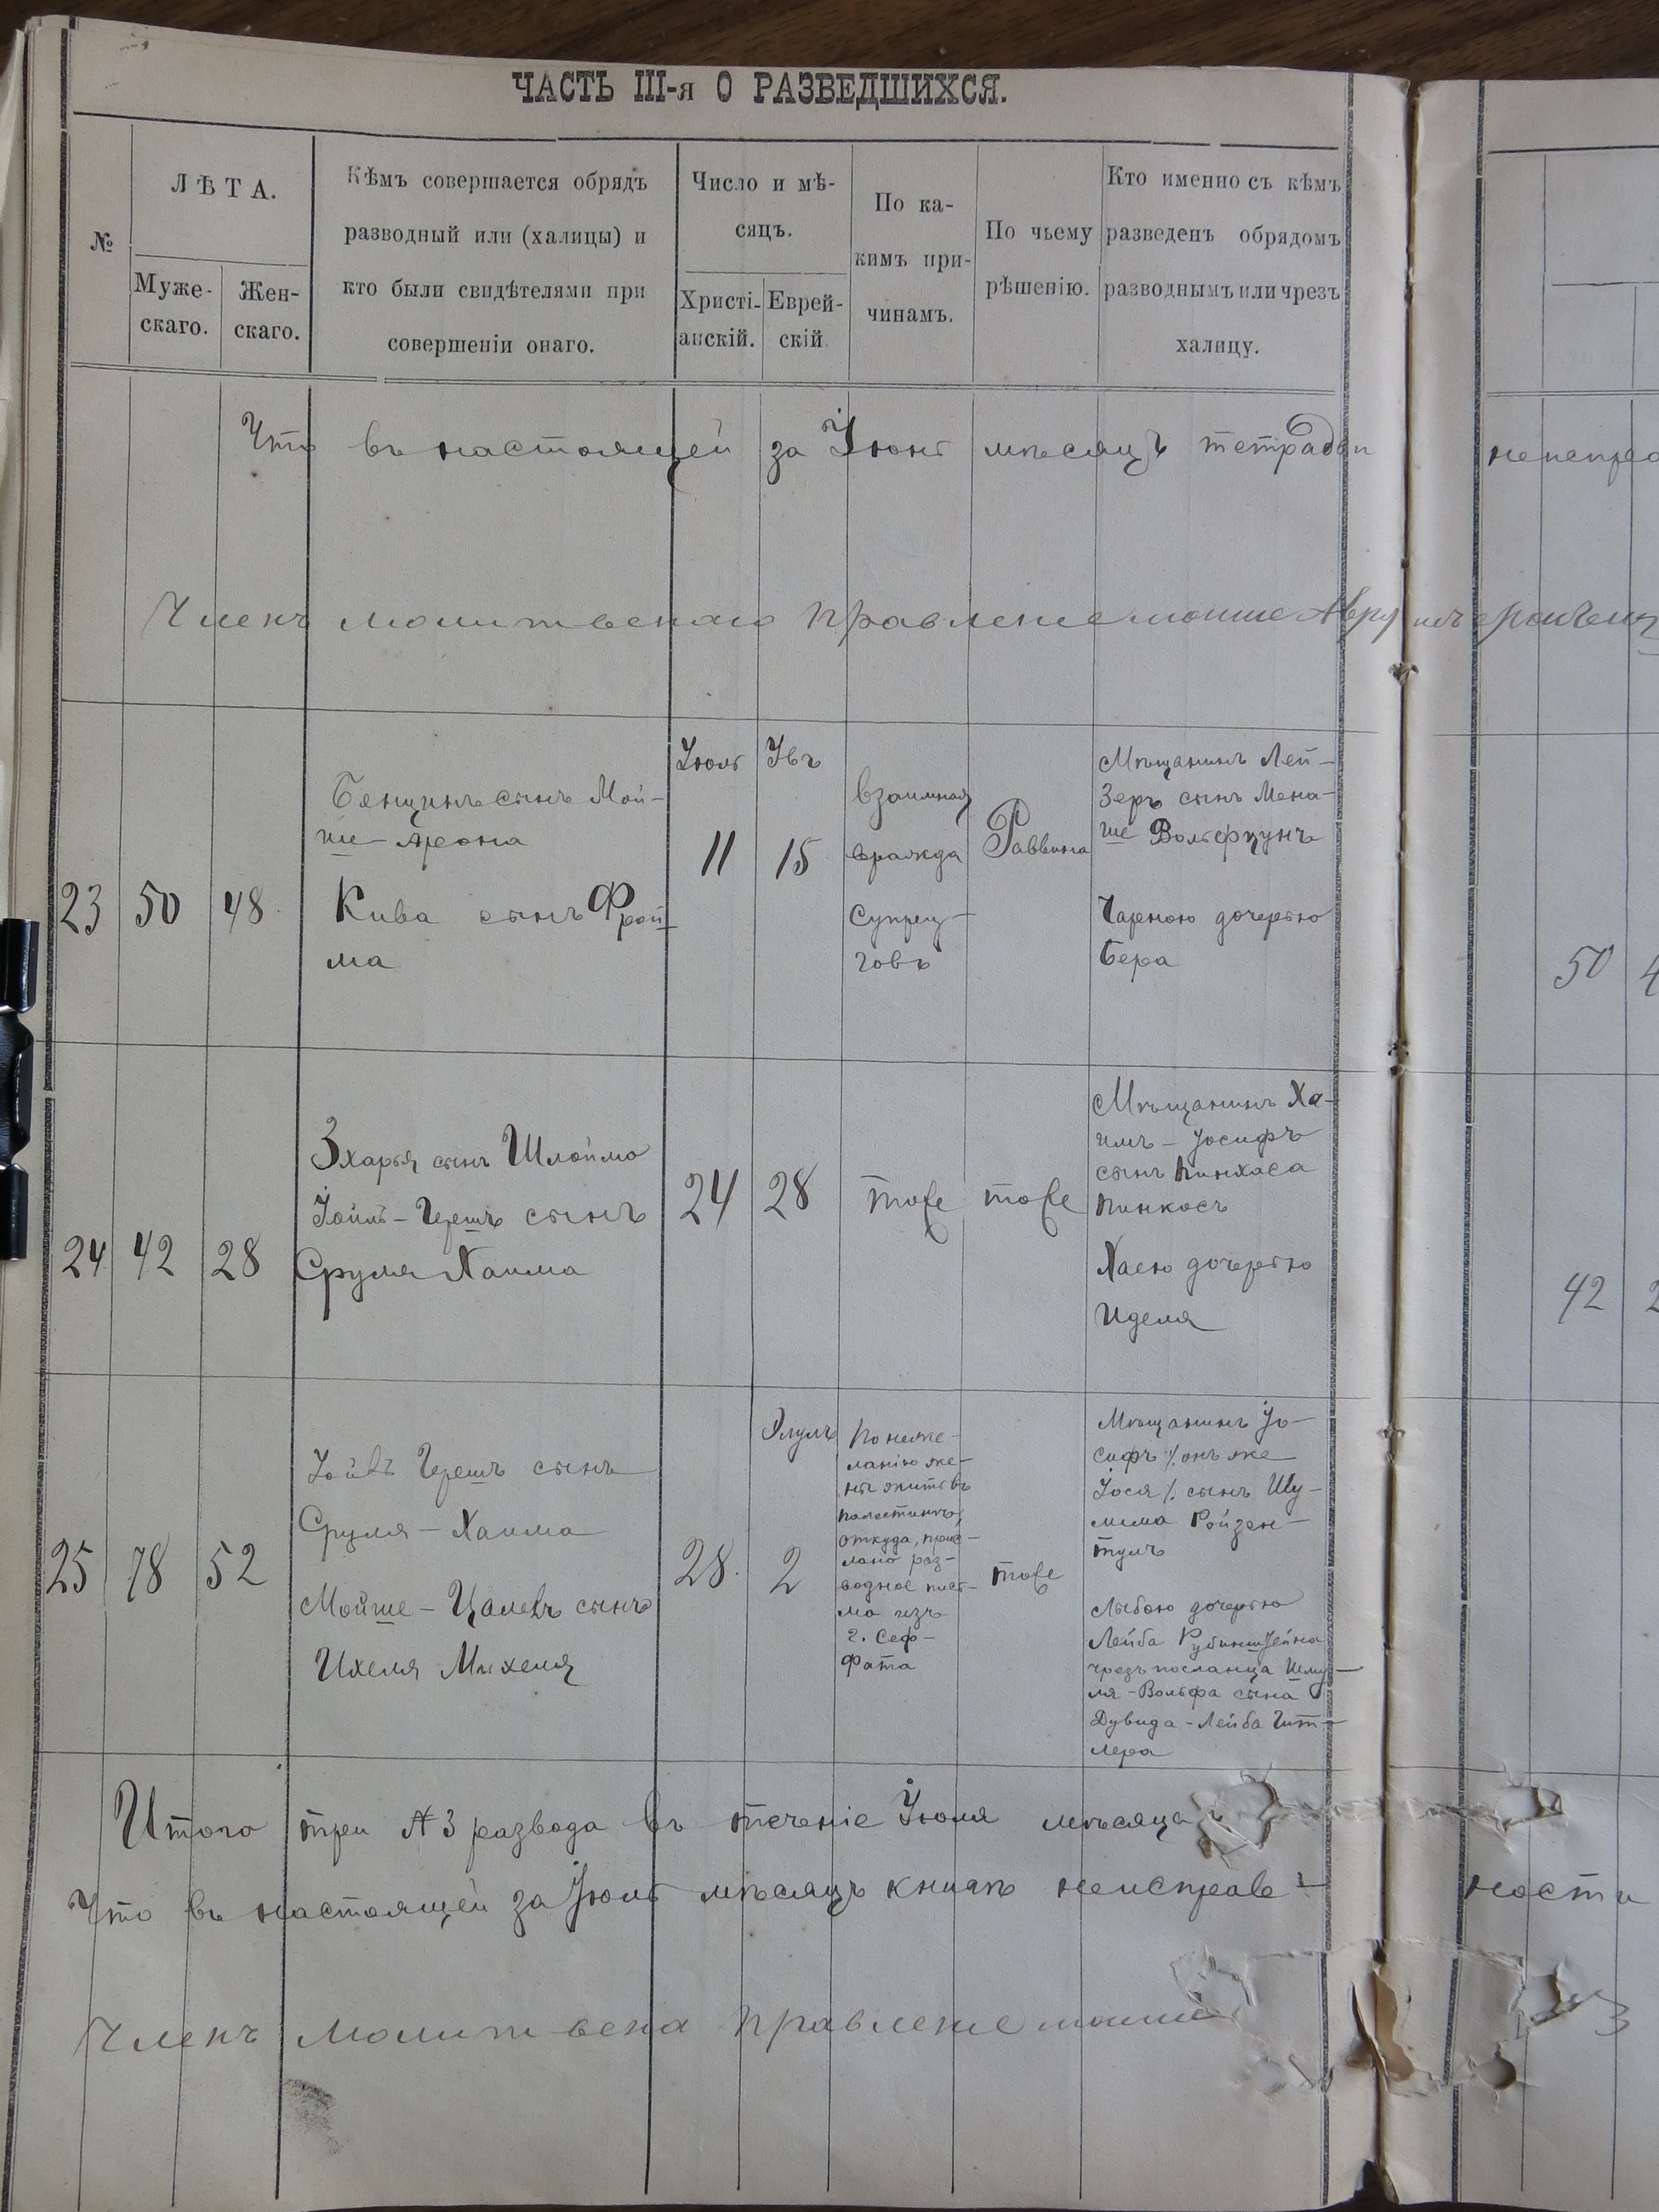 ЧАСТЬ III-я О РАЗВЕДШИХСЯ.
№
ЛѢТА.
Муже-
скаго.
Жен-
скаго.
Кѣмъ совершается обрядъ
разводный или (халицы) и
кто были свидѣтелями при
совершеніи онаго.
Число и мѣ-
сяцъ.
Христі-
анскій.
Еврей-
скій.
По ка-
кимъ при-
чинамъ.
По чьему
рѣшенію.
Кто именно съ кѣмъ
разведенъ обрядомъ
разводнымъ или чрезъ
халицу.
Что въ настоящей за Іюнь мѣсяцъ тетради
Членъ молитвенаго правление мошие
23
50
48
сынъ Мой-
ше-Арона
Кива сынъ Фрой-
ма
Іюль
11
15
взаимная
вражда
супруг-
говъ
Раввина
Мѣщанинъ Лей-
зеръ сынъ Мена-
ше
Черною дочерью
Бера
50
24
42
28
Зхарья сынъ Шлоймо
сынъ
Сруля Хаима
24
28
тоже
тоже
Мѣщанинъ Ха-
имъ-Іосифъ
сынъ Пинхаса
Пинкосъ
Хаею дочерью
Иделя
42
25
78
52
сынъ
Сруля-Хаима
Мойше-Цалевъ сынъ
Ихеля Михеля
28.
Элулъ
2
По неже-
ланію же-
ны жить въ
Палестинѣ,
откуда, прис-
лано раз-
водное пись-
мо изъ
г. Сеф-
фата
тоже
Мѣщанинъ Іо-
сифъ ./. онъ же
Іося ./. сынъ Шу-
лима Ройзен-
тулъ
дочерью
Лейба Рубинштейна
чрезъ посланца Шму-
ля-Вольфа сына
Дувида-Лейба Гит-
лера
Итого три № 3 развода въ теченіе Іюля мѣсяца
Что въ настоящей за Іюль мѣсяцъ книгѣ неисправ-
ности
Членъ молитвена правление мошие